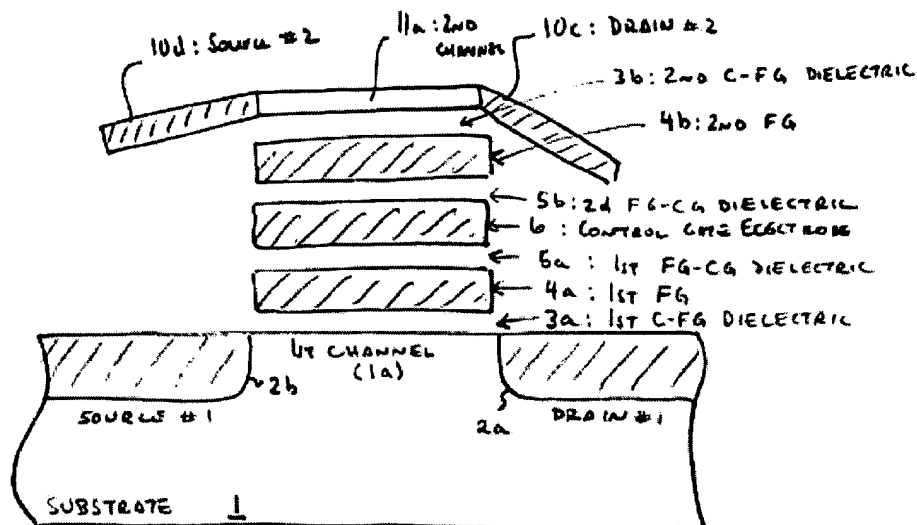 10d: SOURCE #2
11a: 2ND CHANNEL
10c: DRAIN #2
3b: 2ND C-FG DIELECTRIC
4b: 2ND FG
5b: 2d FG-CG DIELECTRIC
6: CONTROL GATE ELECTRODE
5a: 1ST FG-CG DIELECTRIC
4a: 1ST FG
3a: 1ST C-FG DIELECTRIC
1ST CHANNEL
(1a)
2b
SOURCE #1
2a
DRAIN #1
SUBSTRATE 1